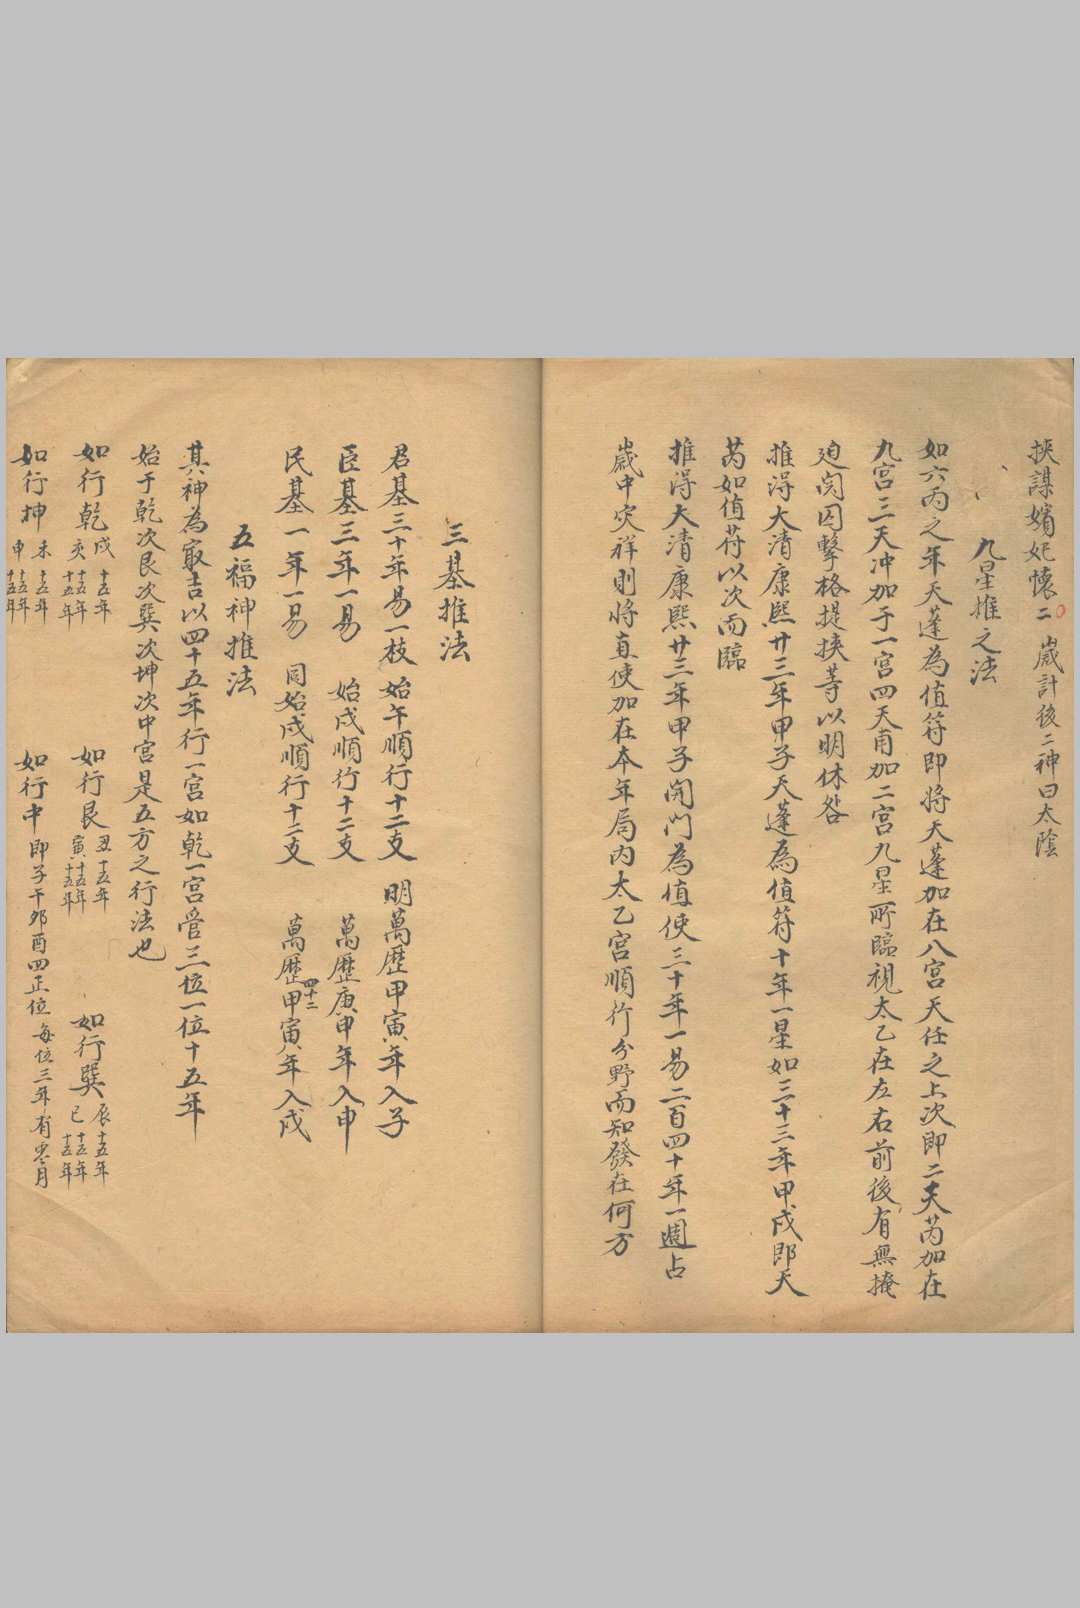 挾謀嬪妃懷二　歲計後二神曰太陰
九星推之法
如六丙之年天蓬為值符即將天蓬加在八宮天任之上次即二天芮加在
九宮三天冲加于一宮四天甫加二宮九星所臨視太乙在左右前後有無掩
迫関囚擊格提挾等以明休咎
推得大清康熙廿三年甲子天蓬為值符十年一星如三十三年甲戌即天
芮如值苻以次而臨
推得大清康熙廿三年甲子開門為值使三十年一易二百四十年一週占
歲中灾祥則將直使加在本年局內太乙宮順行分野而知發在何方
三基推法
君基三十年易一枝　始午順行十二支　明萬歷甲寅年入子
臣基三年一易　始戌順行十二支　萬歷庚申年入申
民基一年一易　同始戌順行十二支　萬歷四十二甲寅年入戌
五福神推法
其神為㝡吉以四十五年行一宮如乾一宮管三位一位十五年
始于乾次艮次巽次坤次中宮是五方之行法也
如行乾　戌十五年　亥十五年　十五年　如行艮　丑十五年　寅十五年　十五年　如行巽　辰十五年　巳十五年　十五年
如行坤　未十五年　申十五年　十五年　如行中　即子午卯酉四正位　每位三年有零月